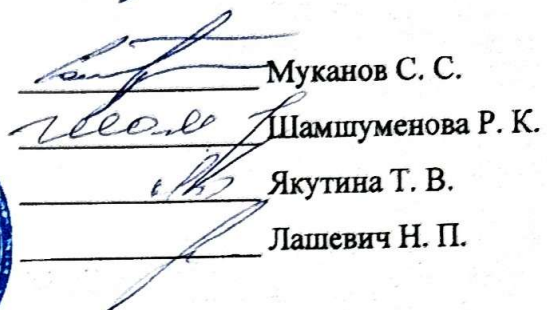 Муканов С. С.
Шамшуменова Р. К.
Якутина Т. В.
Лашевич Н. П.